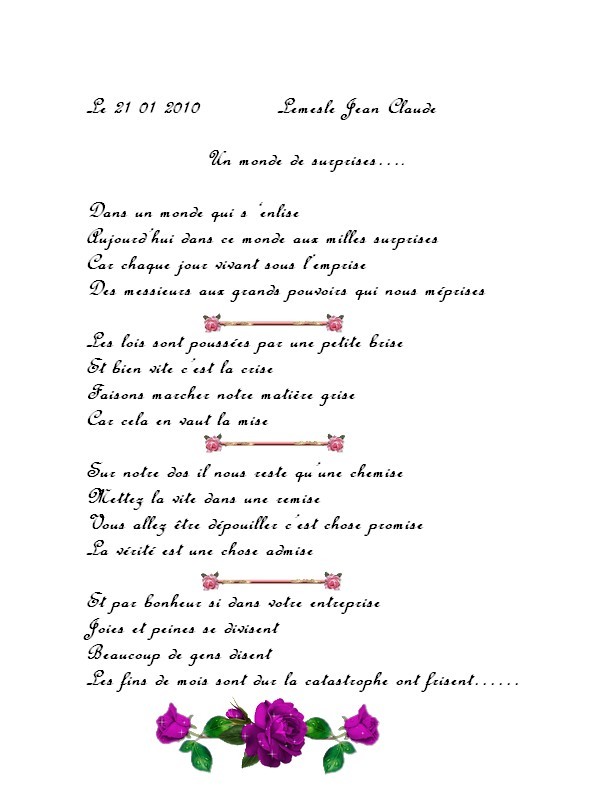 Le 21 01 2010 Lemesle Jean Claude
Un monde de surprises....
Dans un monde qui s 'enlise
Aujourd'hui dans ce monde aux milles surprises
Car chaque jour vivant sous l'emprise
Des messieurs aux grands pouvoirs qui nous méprises
Les lois sont poussées par une petite brise
Et bien vite c'est la crise
Faisons marcher notre matière grise
Car cela en vaut la mise
Sur notre dos il nous reste qu'une chemise
Mettez la vite dans une remise
Vous allez être dépouiller c'est chose promise
La vérité est une chose admise
Et par bonheur si dans votre entreprise
Joies et peines se divisent
Beaucoup de gens disent
Les fins de mois sont dur la catastrophe ont frisent......